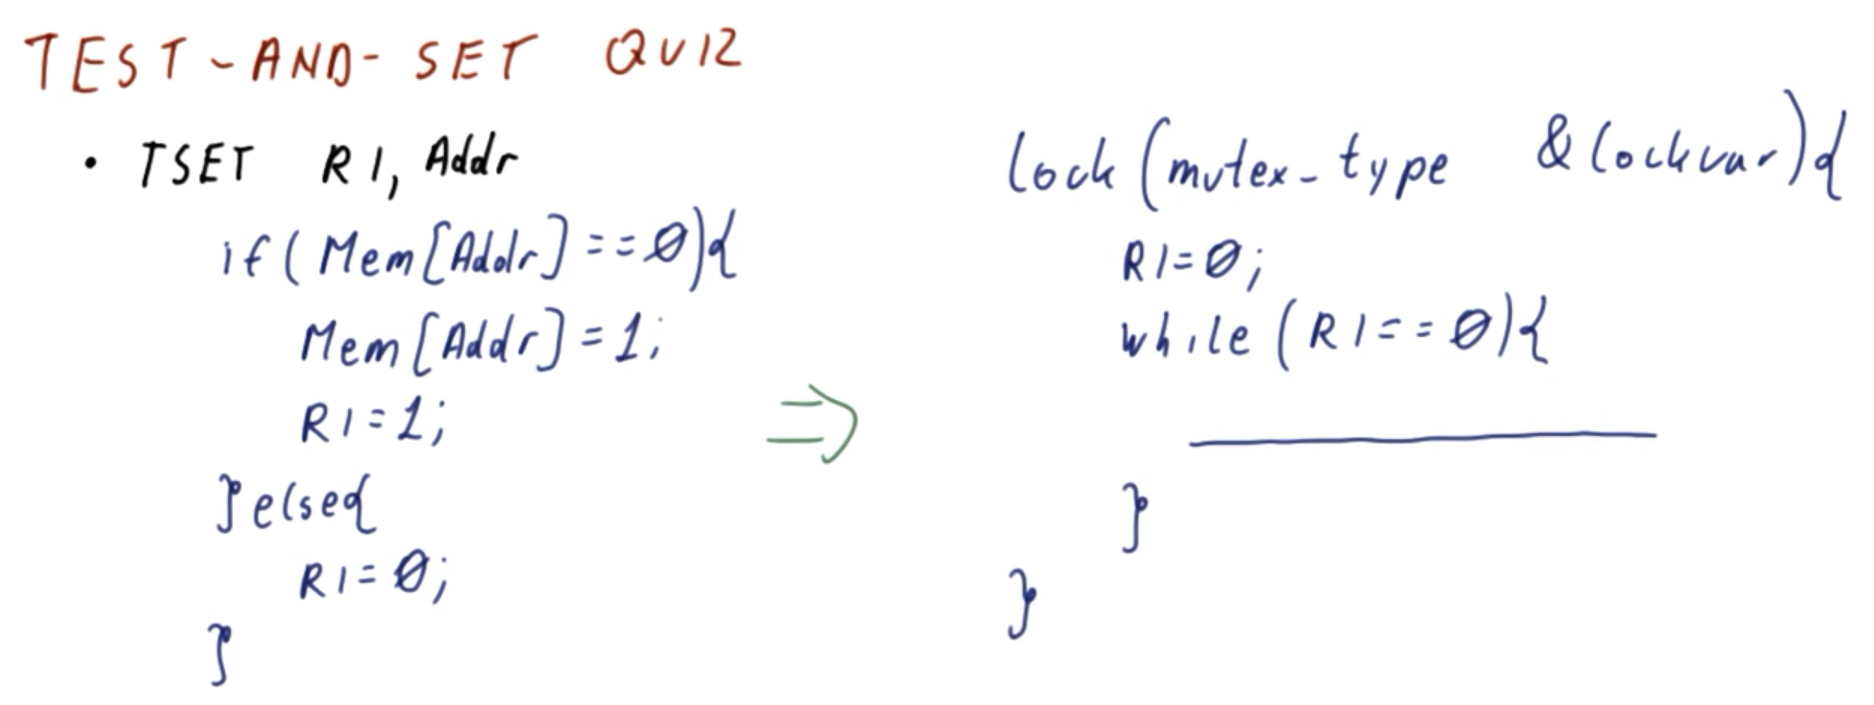 TEST-AND-SET QUIZ
• TSET R1, Addr
if (Mem[Addr]==0){
Mem[Addr]=1;
R1=1;
}else{
R1=0;
}
⇒
lock(mutex_type &lockvar){
R1=0;
while(R1==0){
}
}